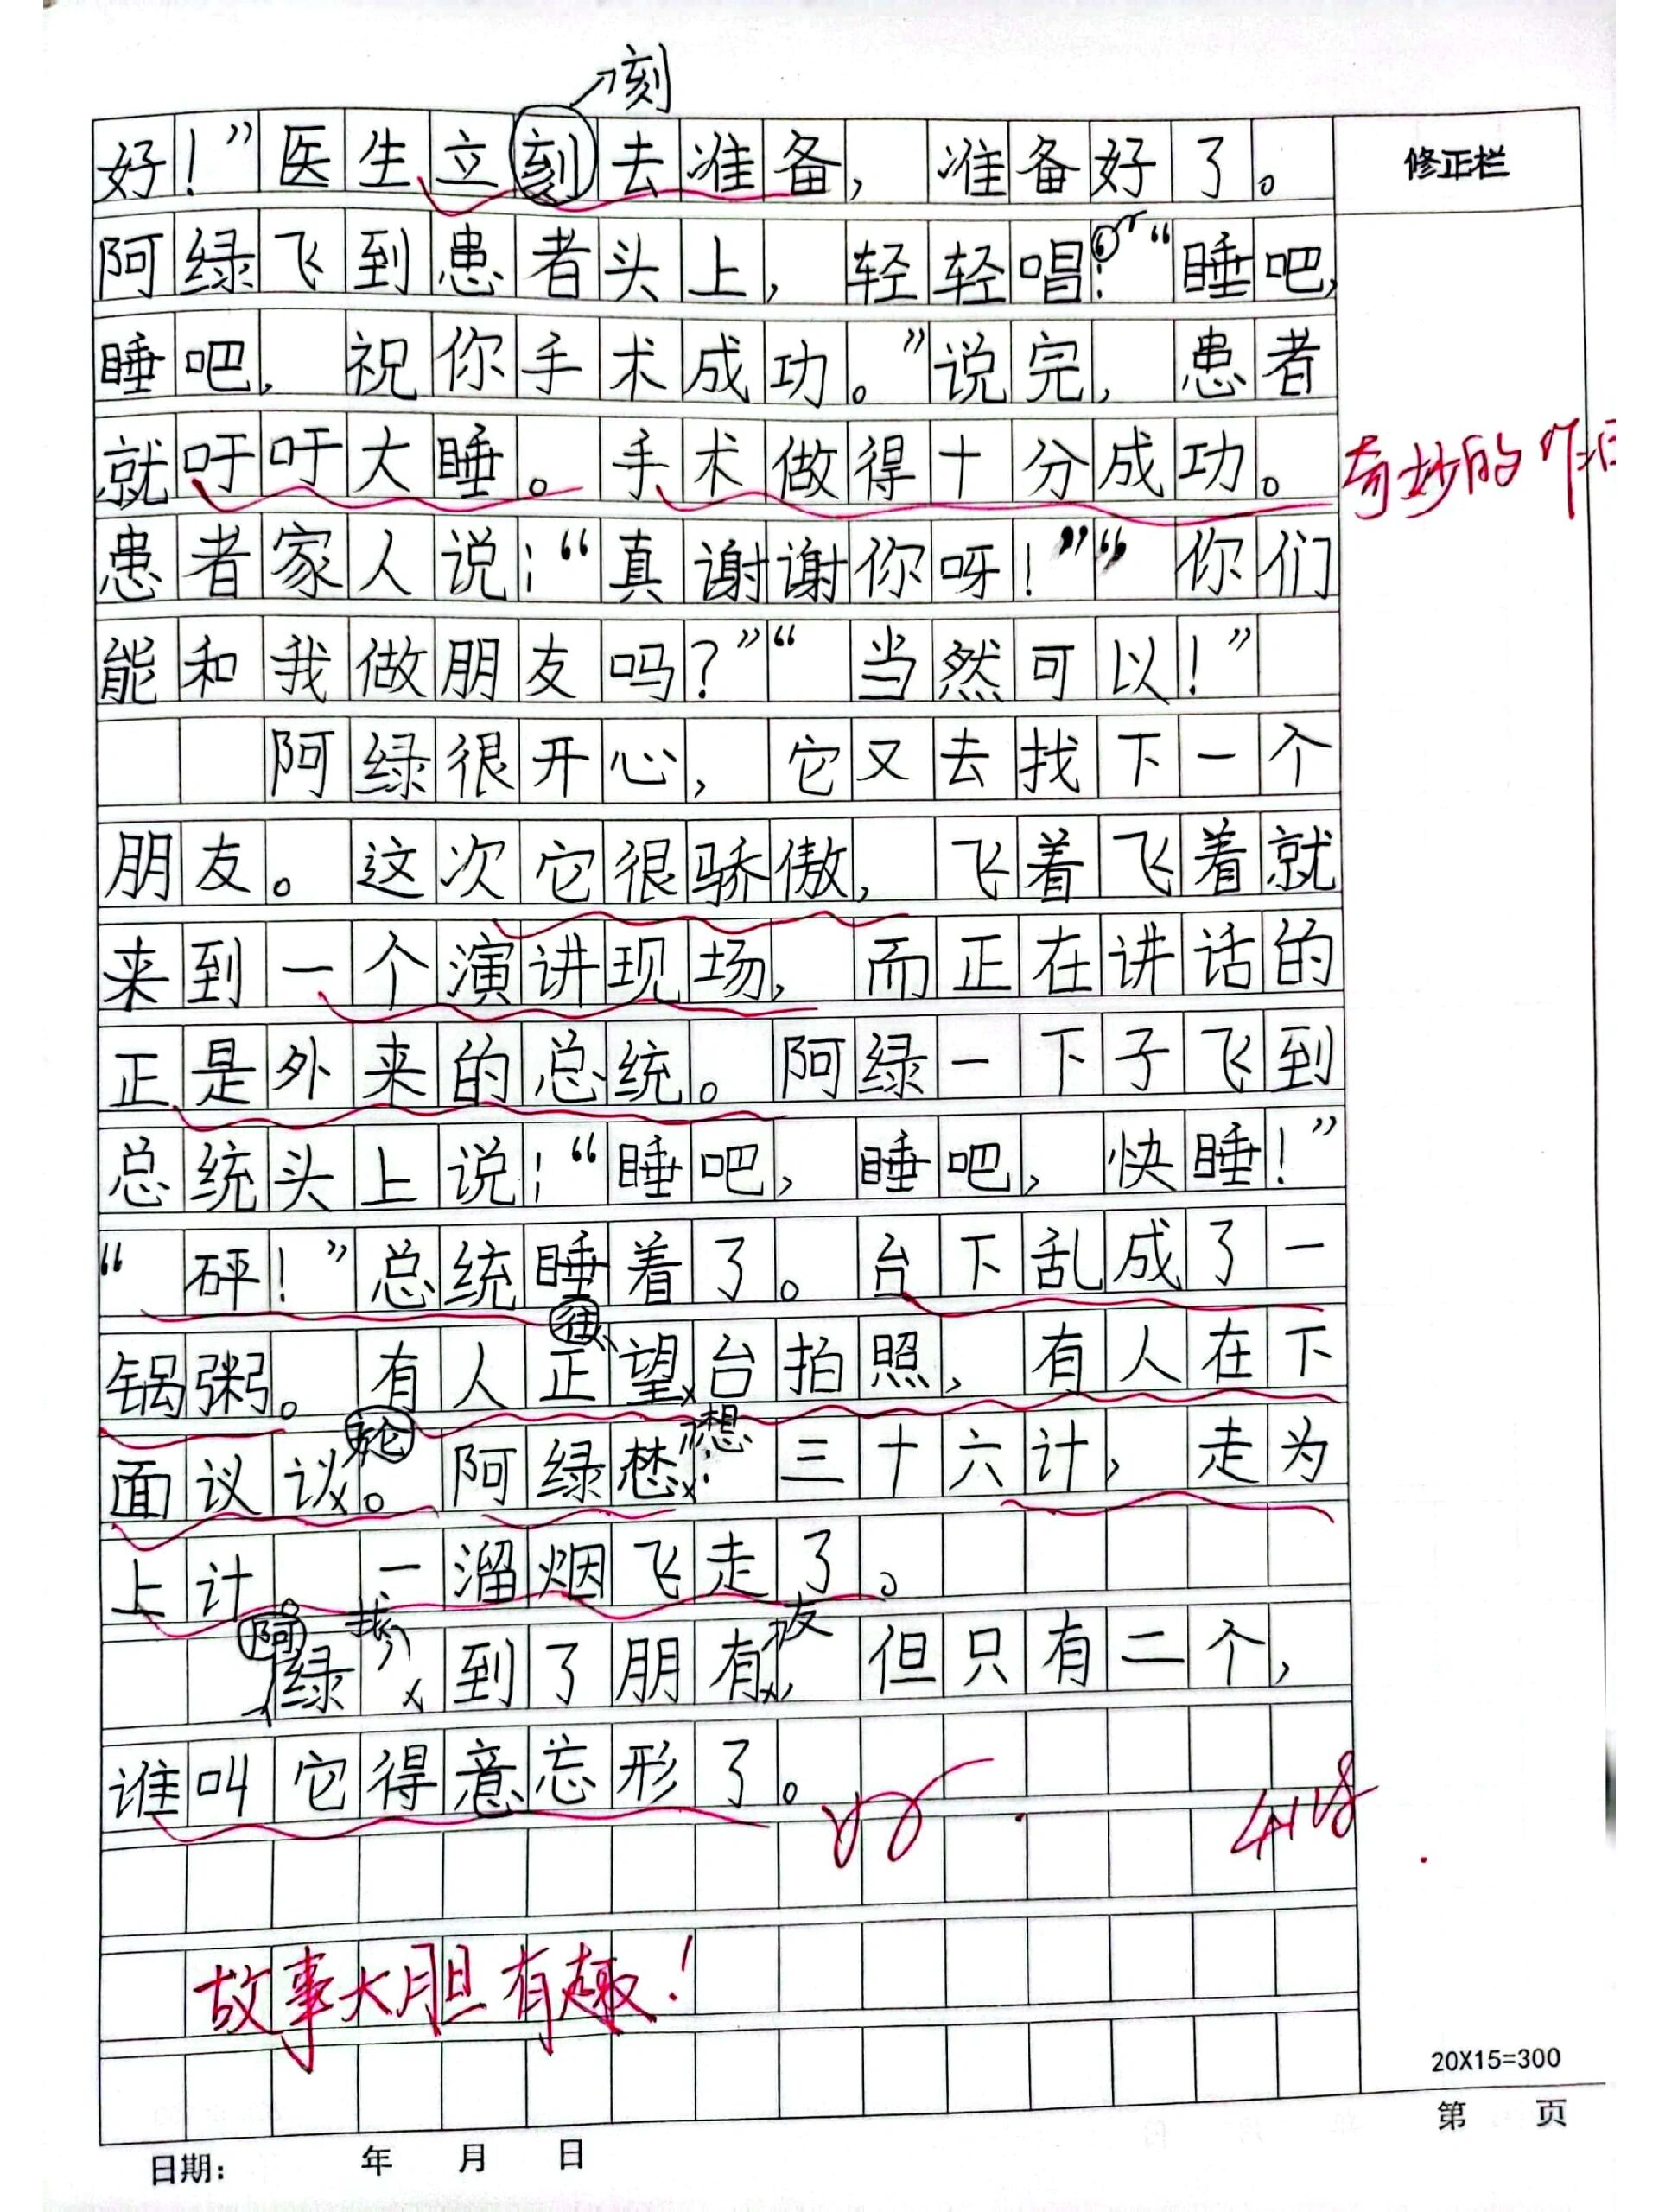 刻
好！”医生立刻去准备，准备好了。
修正栏
阿绿飞到患者头上，轻轻唱：“睡吧，
睡吧，祝你手术成功。”说完，患者
就吁吁大睡。手术做得十分成功。
奇妙的作
患者家人说：“真谢谢你呀！”“你们
能和我做朋友吗？”“当然可以！”
阿绿很开心，它又去找下一个
朋友。这次它很骄傲，飞着飞着就
来到一个演讲现场，而正在讲话的
正是外来的总统。阿绿一下子飞到
总统头上说：“睡吧，睡吧，快睡！”
“砰！”总统睡着了。台下乱成了一
往
锅粥。有人正望台拍照，有人在下
论
想
面议议。阿绿：三十六计，走为
上计。一溜烟飞走了。
阿
找
友
绿到了朋有，但只有二个，
谁叫它得意忘形了。
故事大胆有趣！
20X15=300
第 页
日期： 年 月 日